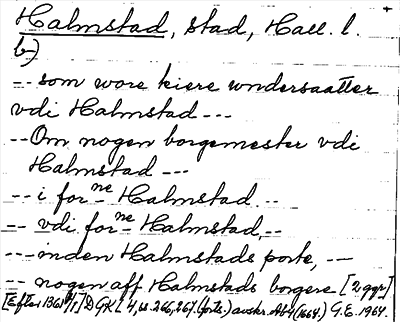 Halmstad, stad, Hall. l.
b)
-- som wore kiere wndersaatter
vdi Halmstad ---
-- Om nogen borgemester vdi
Halmstad ---
-- i forne Halmstad --
-- vdi forne Halmstad, --
--- inden Halmstads porte, --
-- nogen aff Halmstads borgere [2 ggr]
[Efter 1361 1/1] D GKL 4, s. 266, 267. (forts.) avskr. Ab4 (1664.) G.E. 1964.